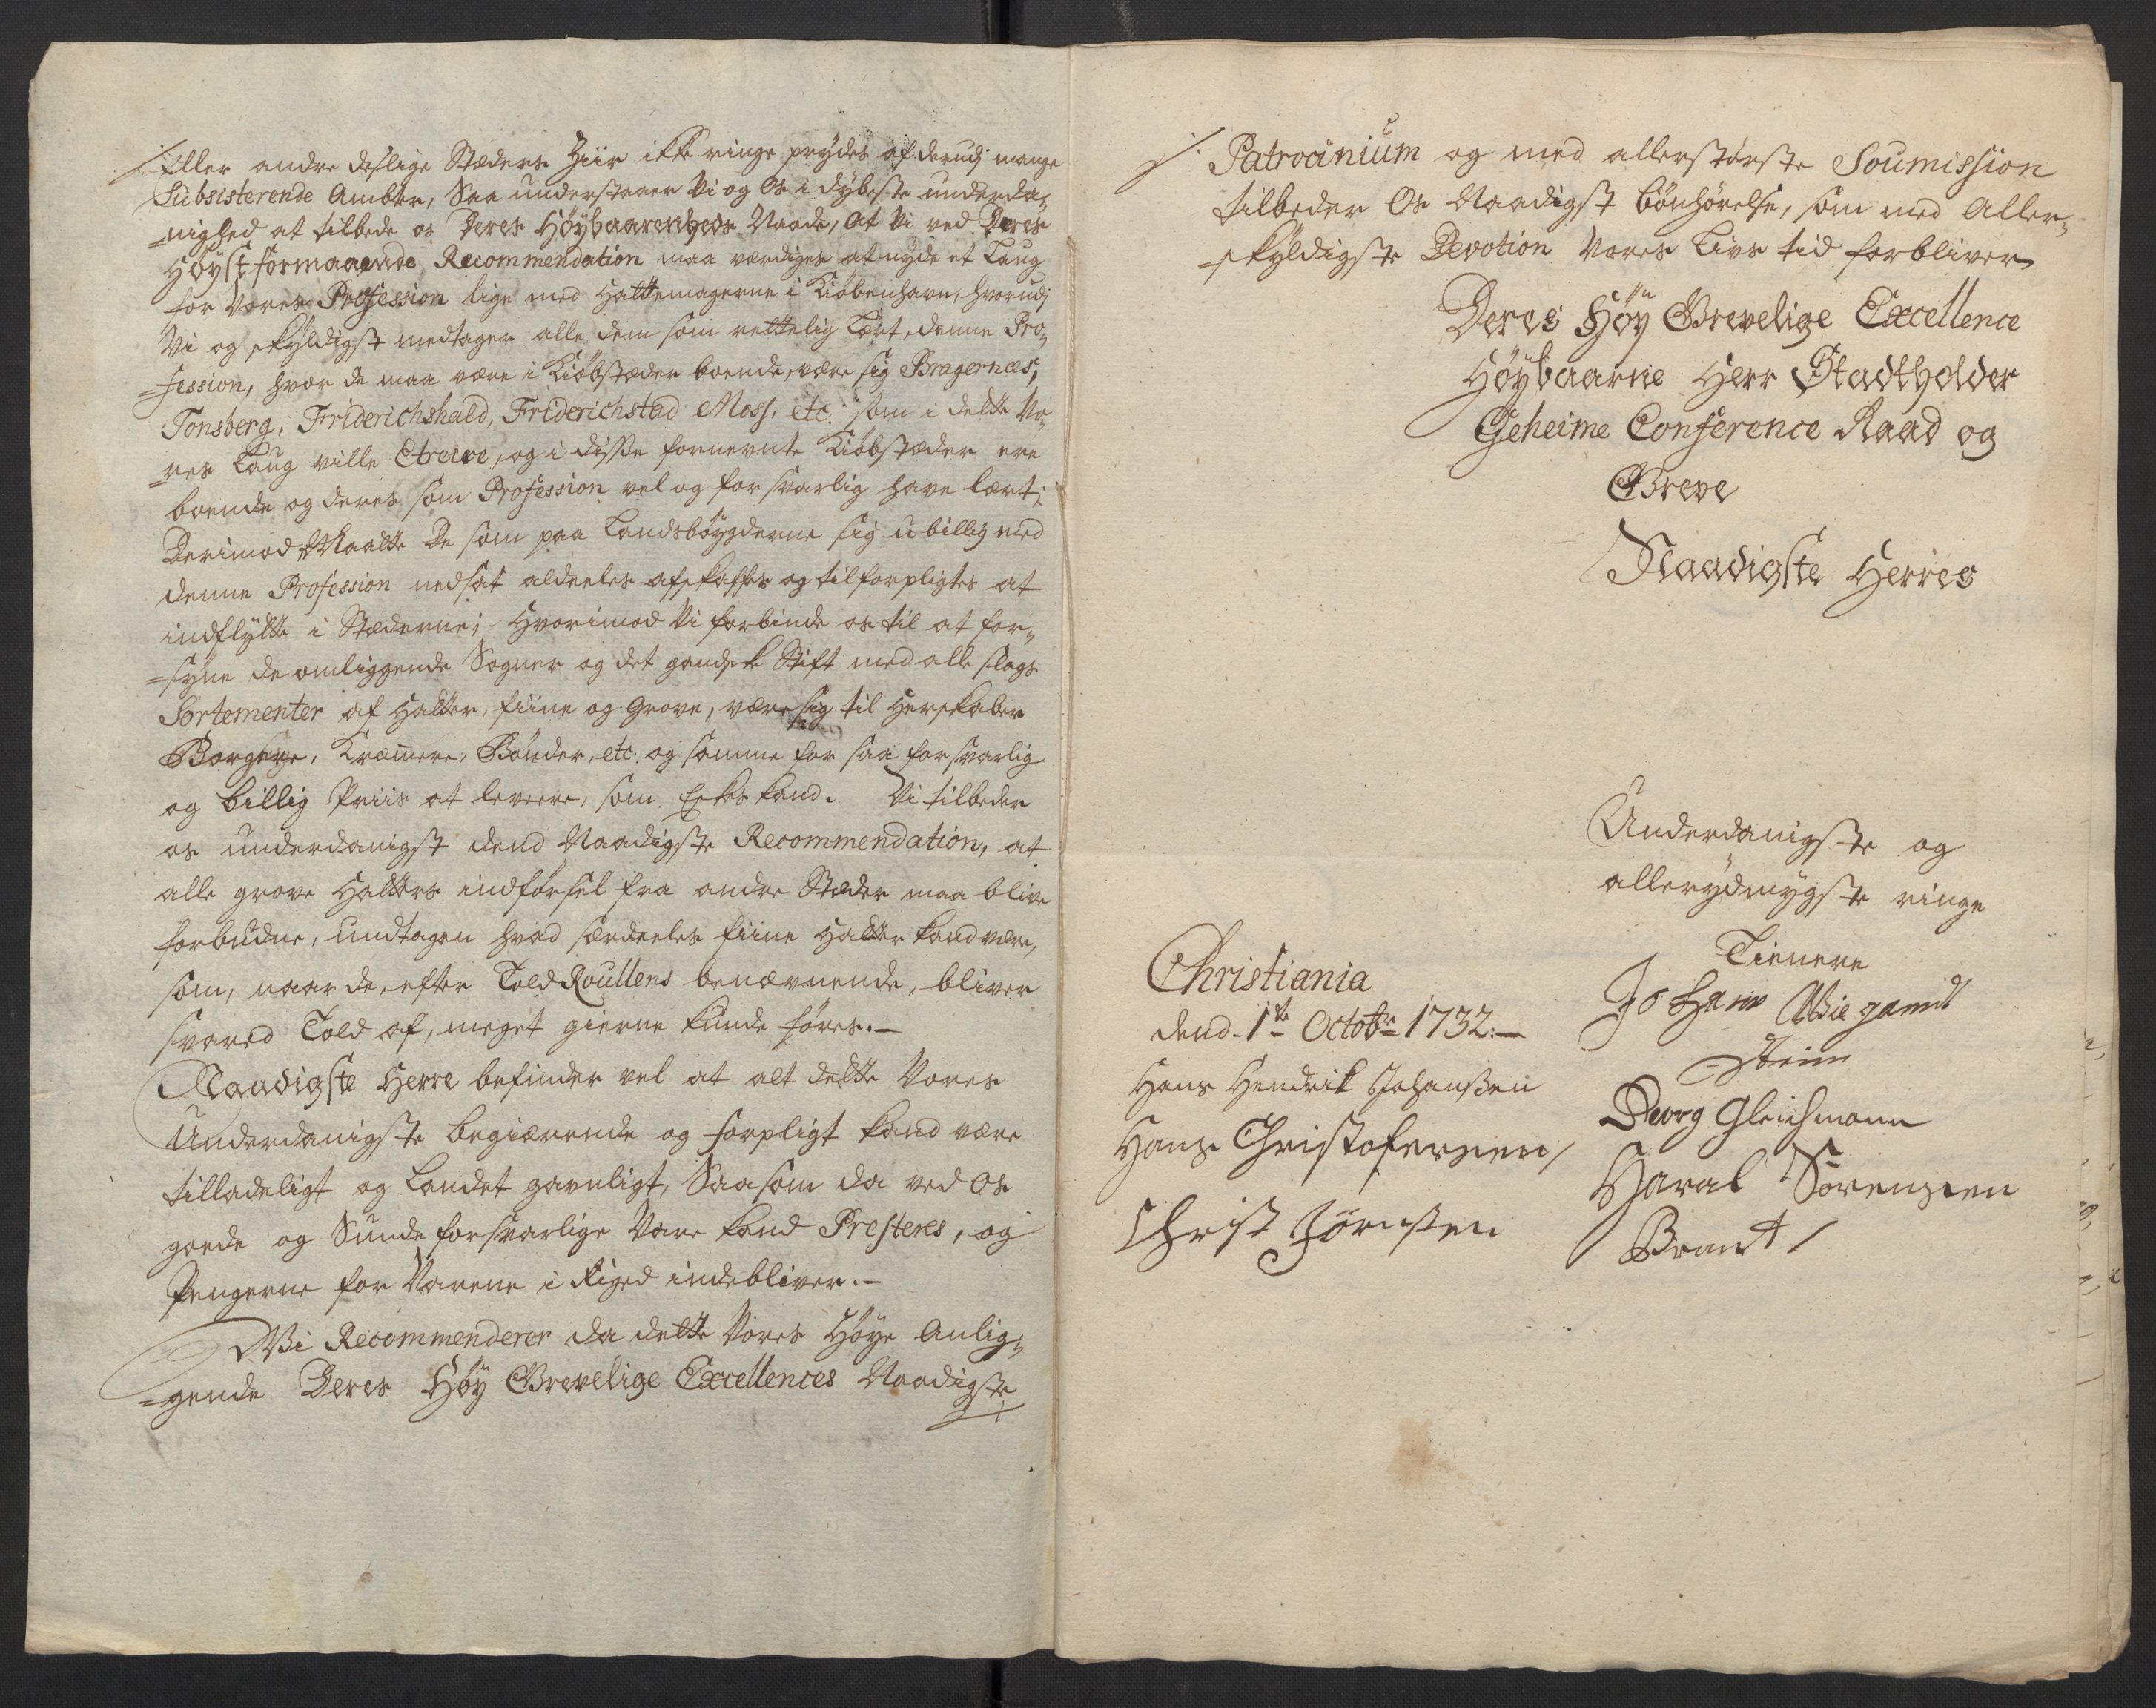 /: Eller andre deslige Stæders Ziir ikke ringe prydes af derudj mange
Subsisterende Ambter, Saa understaaer Vi og Os i dybeste underda„
=nighed at tilbede os Deres Höybaarenheds Naade, at Vi ved Deres
Höyst formaaende Recommendation maa værdiges at nyde et Laug
for Vores Profession lige med Hattemagerne i Kiöbenhavn, hvorudj
Vi og skyldigst medtager alle dem som rettelig Lært denne Pro„
=fession, hvor de maa være i Kiöbstæder boende, være sig Bragernæs,
Tonsberg, Friderichshald, Friderichstad Moss, etc: som i dette Vo„
=res Laug ville Etreire, og i disse fornevnte Kiöbstæder ere
boende og deres som Profession vel og forsvarlig have lært;
Derimod Maatte De som paa Landsböygderne sig ubillig med
denne Profession nedsat aldeeles afskaffes og tilforpligtes at
indflytte i Stæderne; Hvorimod Vi forbinde os til at for„
=syne de omliggende Sogner og det gandske Stift med alle slags
Sortementer af Hatter, fiine og Grove, være sig til Herskaber
Borgere, Kræmere, Bönder, etc: og samme for saa forsvarlig
og billig Priis at levere, som skee kand. Vi tilbeder
os underdanigst dend Naadigste Recommendation, at
alle grove Hatters indförsel fra andre Stæder maa blive
forbudne, undtagen hvad særdeeles fiine Hatter kand være,
som, naar de, efter Told Roullens benævnende, bliver
svared Told af, meget gierne kunde föres.—
Naadigste Herre befinder vel at alt dette Vores
Underdanigste begiærende og forpligt kand være
tilladeligt og Landet gavnligt, Saasom da ved Os
goede og Sunde forsvarlige Vare kand Presteres, og
Pengerne for Varene i Riged indebliver.—
Vi Recommenderer da dette Vores Höye Anlig„
=gende Deres Höy Grevelige Excellences Naadigste
/: Patrocinium og med allerstörste Soumission
tilbeder Os Naadigst bönhörelse, som med Aller„
=skyldigste Devotion Vores Livs tid forbliver
Deres Höy Grevelige Excellence
Höybaarne Herr Stadtholder
Geheime Conference Raad og
Greve
Naadigste Herres
Underdanigste og
allerydmygste ringe
Tienere
Christiania
dend 1te Octobr 1732.—
Johann Wiegandt
Stein
Hans Hendrik Johanßen
Georg Gleichmann
Hans Christofersen /
Haral Sörensen
Christ Jörnßen
Brant /